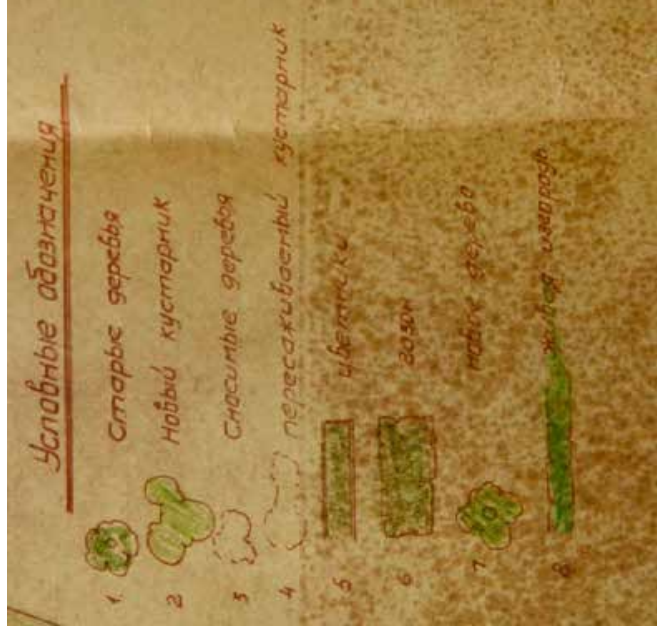 Условные обозначения
1. Старые деревья
2 Новый кустарник
3 Сносимые деревья
4 пересаживаемый кустарник
5 цветники
6 газон
7 новые дерево
8 живая изгородь